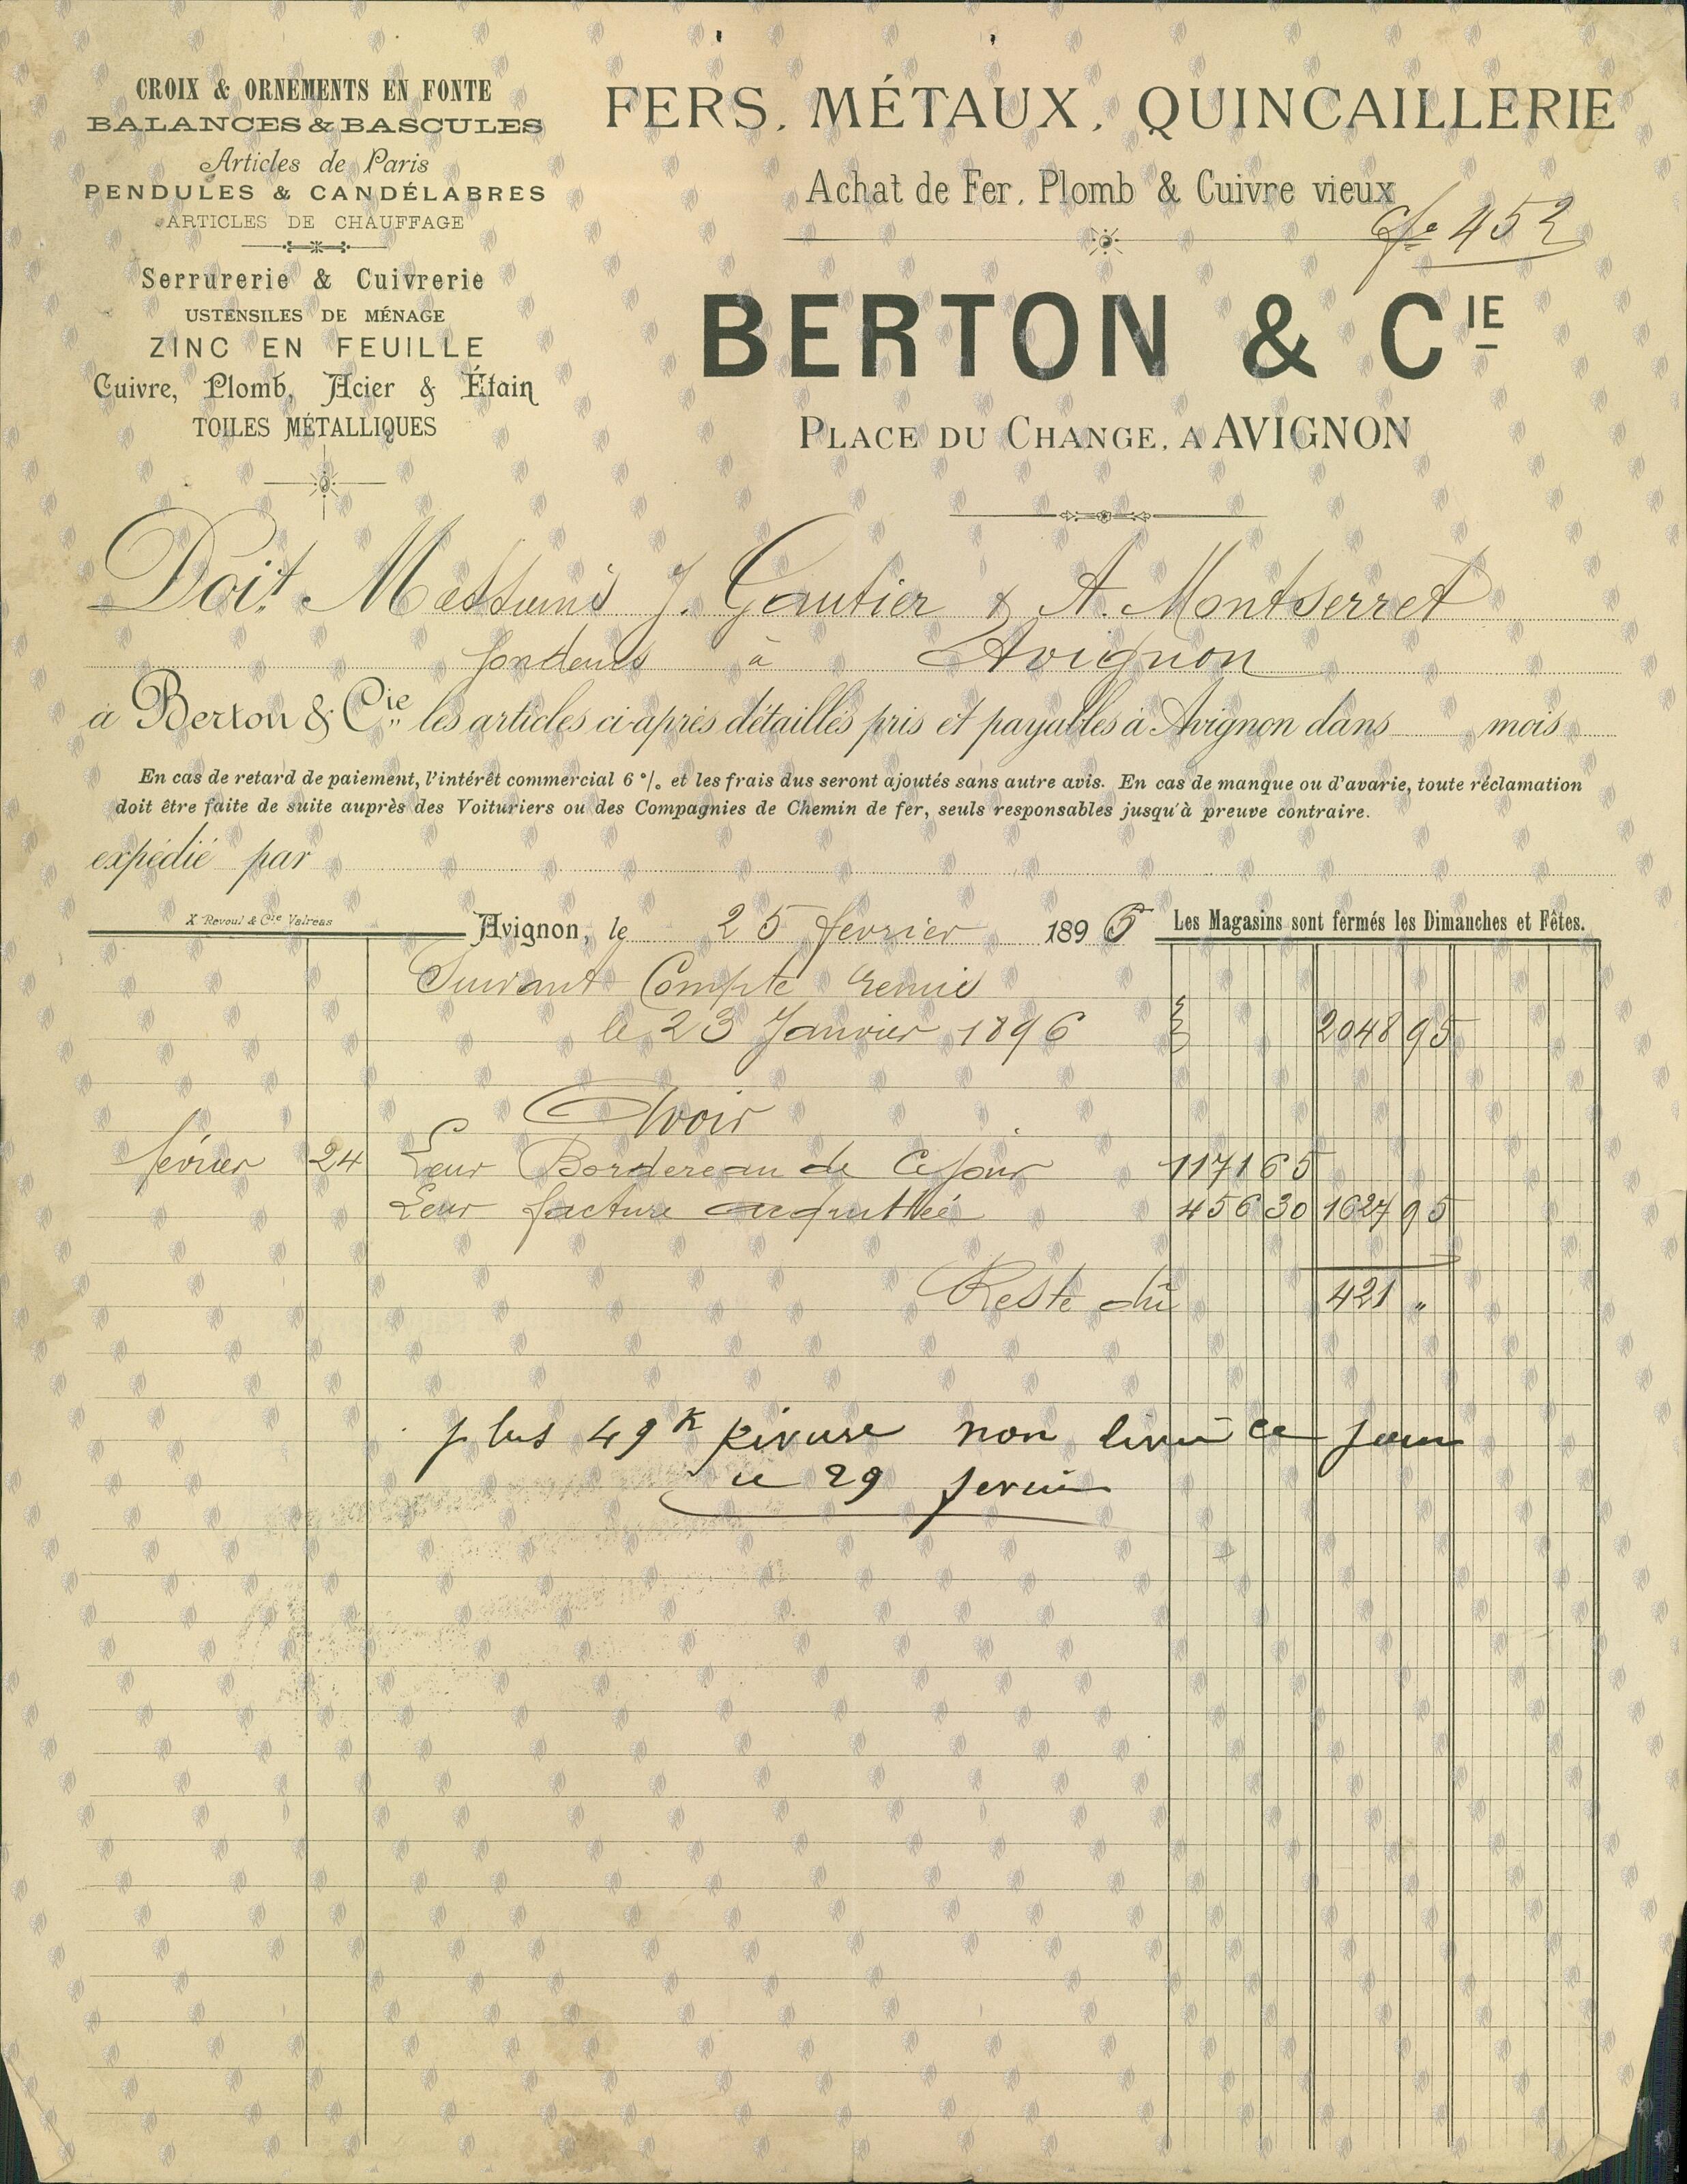 CROIX & ORNEMENTS EN FONTE
BALANCES & BASCULES
Articles de Paris
PENDULES & CANDÉLABRES
ARTICLES DE CHAUFFAGE
Serrurerie & Cuivrerie
USTENSILES DE MÉNAGE
ZINC EN FEUILLE
Cuivre, Plomb, Acier & Étain
TOILES MÉTALLIQUES
FERS, MÉTAUX, QUINCAILLERIE
Achat de Fer, Plomb & Cuivre vieux
452
BERTON & CIE
PLACE DU CHANGE, A AVIGNON
Doit Messieurs J. Gautier & A. Montserret
fondeurs à Avignon
à Berton & Cie les articles ci-après détaillés pris et payables à Avignon dans mois
En cas de retard de paiement, l'intérêt commercial 6 %. et les frais dus seront ajoutés sans autre avis. En cas de manque ou d'avarie, toute réclamation
doit être faite de suite auprès des Voituriers ou des Compagnies de Chemin de fer, seuls responsables jusqu'à preuve contraire.
expédié par
X Revoul & Cie Valréas
Avignon, le 25 fevrier 1896
Les Magasins sont fermés les Dimanches et Fêtes.
Suivant Compte remis
le 23 Janvier 1896 2048 95
Avoir
février 24 Leur Bordereau de ce jour 1171 65
Leur facture acquittée 456 30 1627 95
Reste dû 421 "
plus 49 K non livré ce jour
ce 29 fevrier